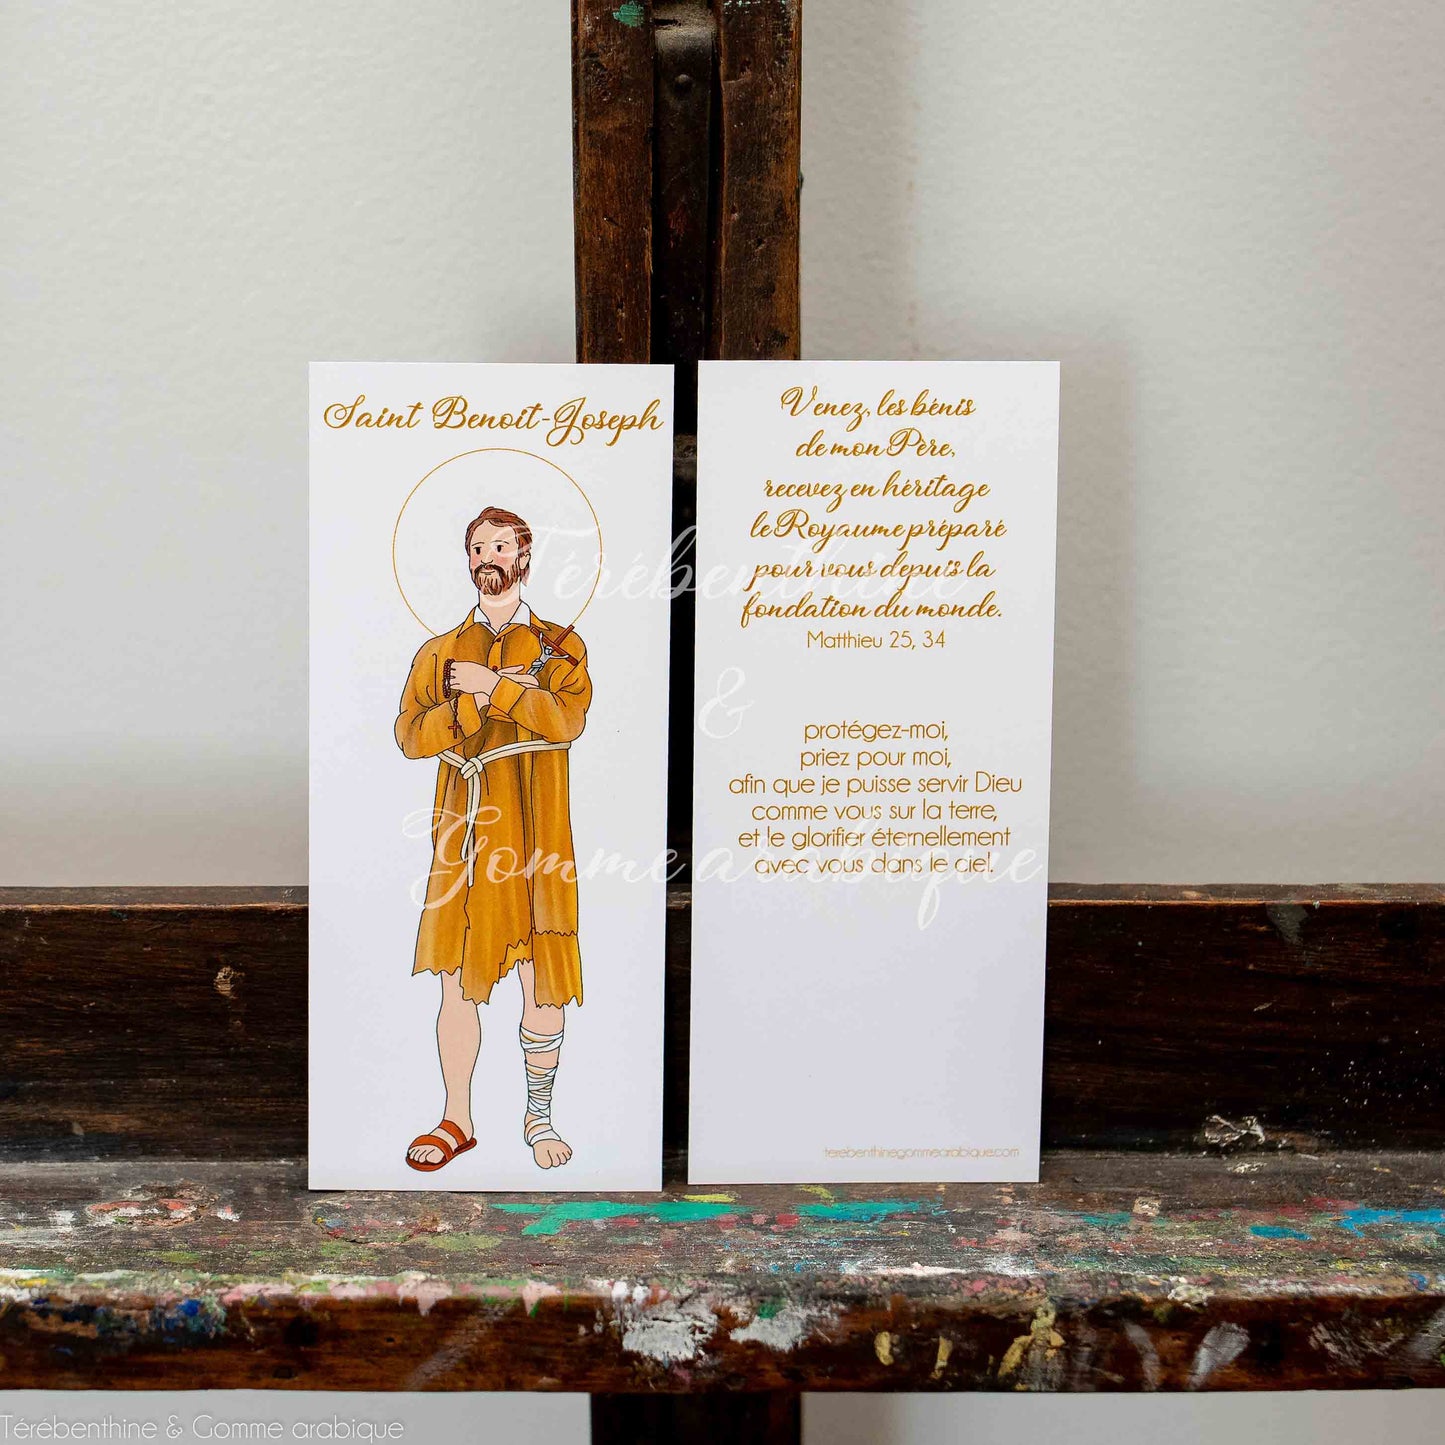 Saint Benoit-Joseph
Venez, les bénis
de mon Père,
recevez en héritage
le Royaume préparé
pour vous depuis la
fondation du monde.
Matthieu 25, 34
protégez-moi,
priez pour moi,
afin que je puisse servir Dieu
comme vous sur la terre,
et le glorifier éternellement
avec vous dans le ciel.
terebenthinegommearabique.com
Térébenthine
&
Gomme arabique
Térébenthine & Gomme arabique